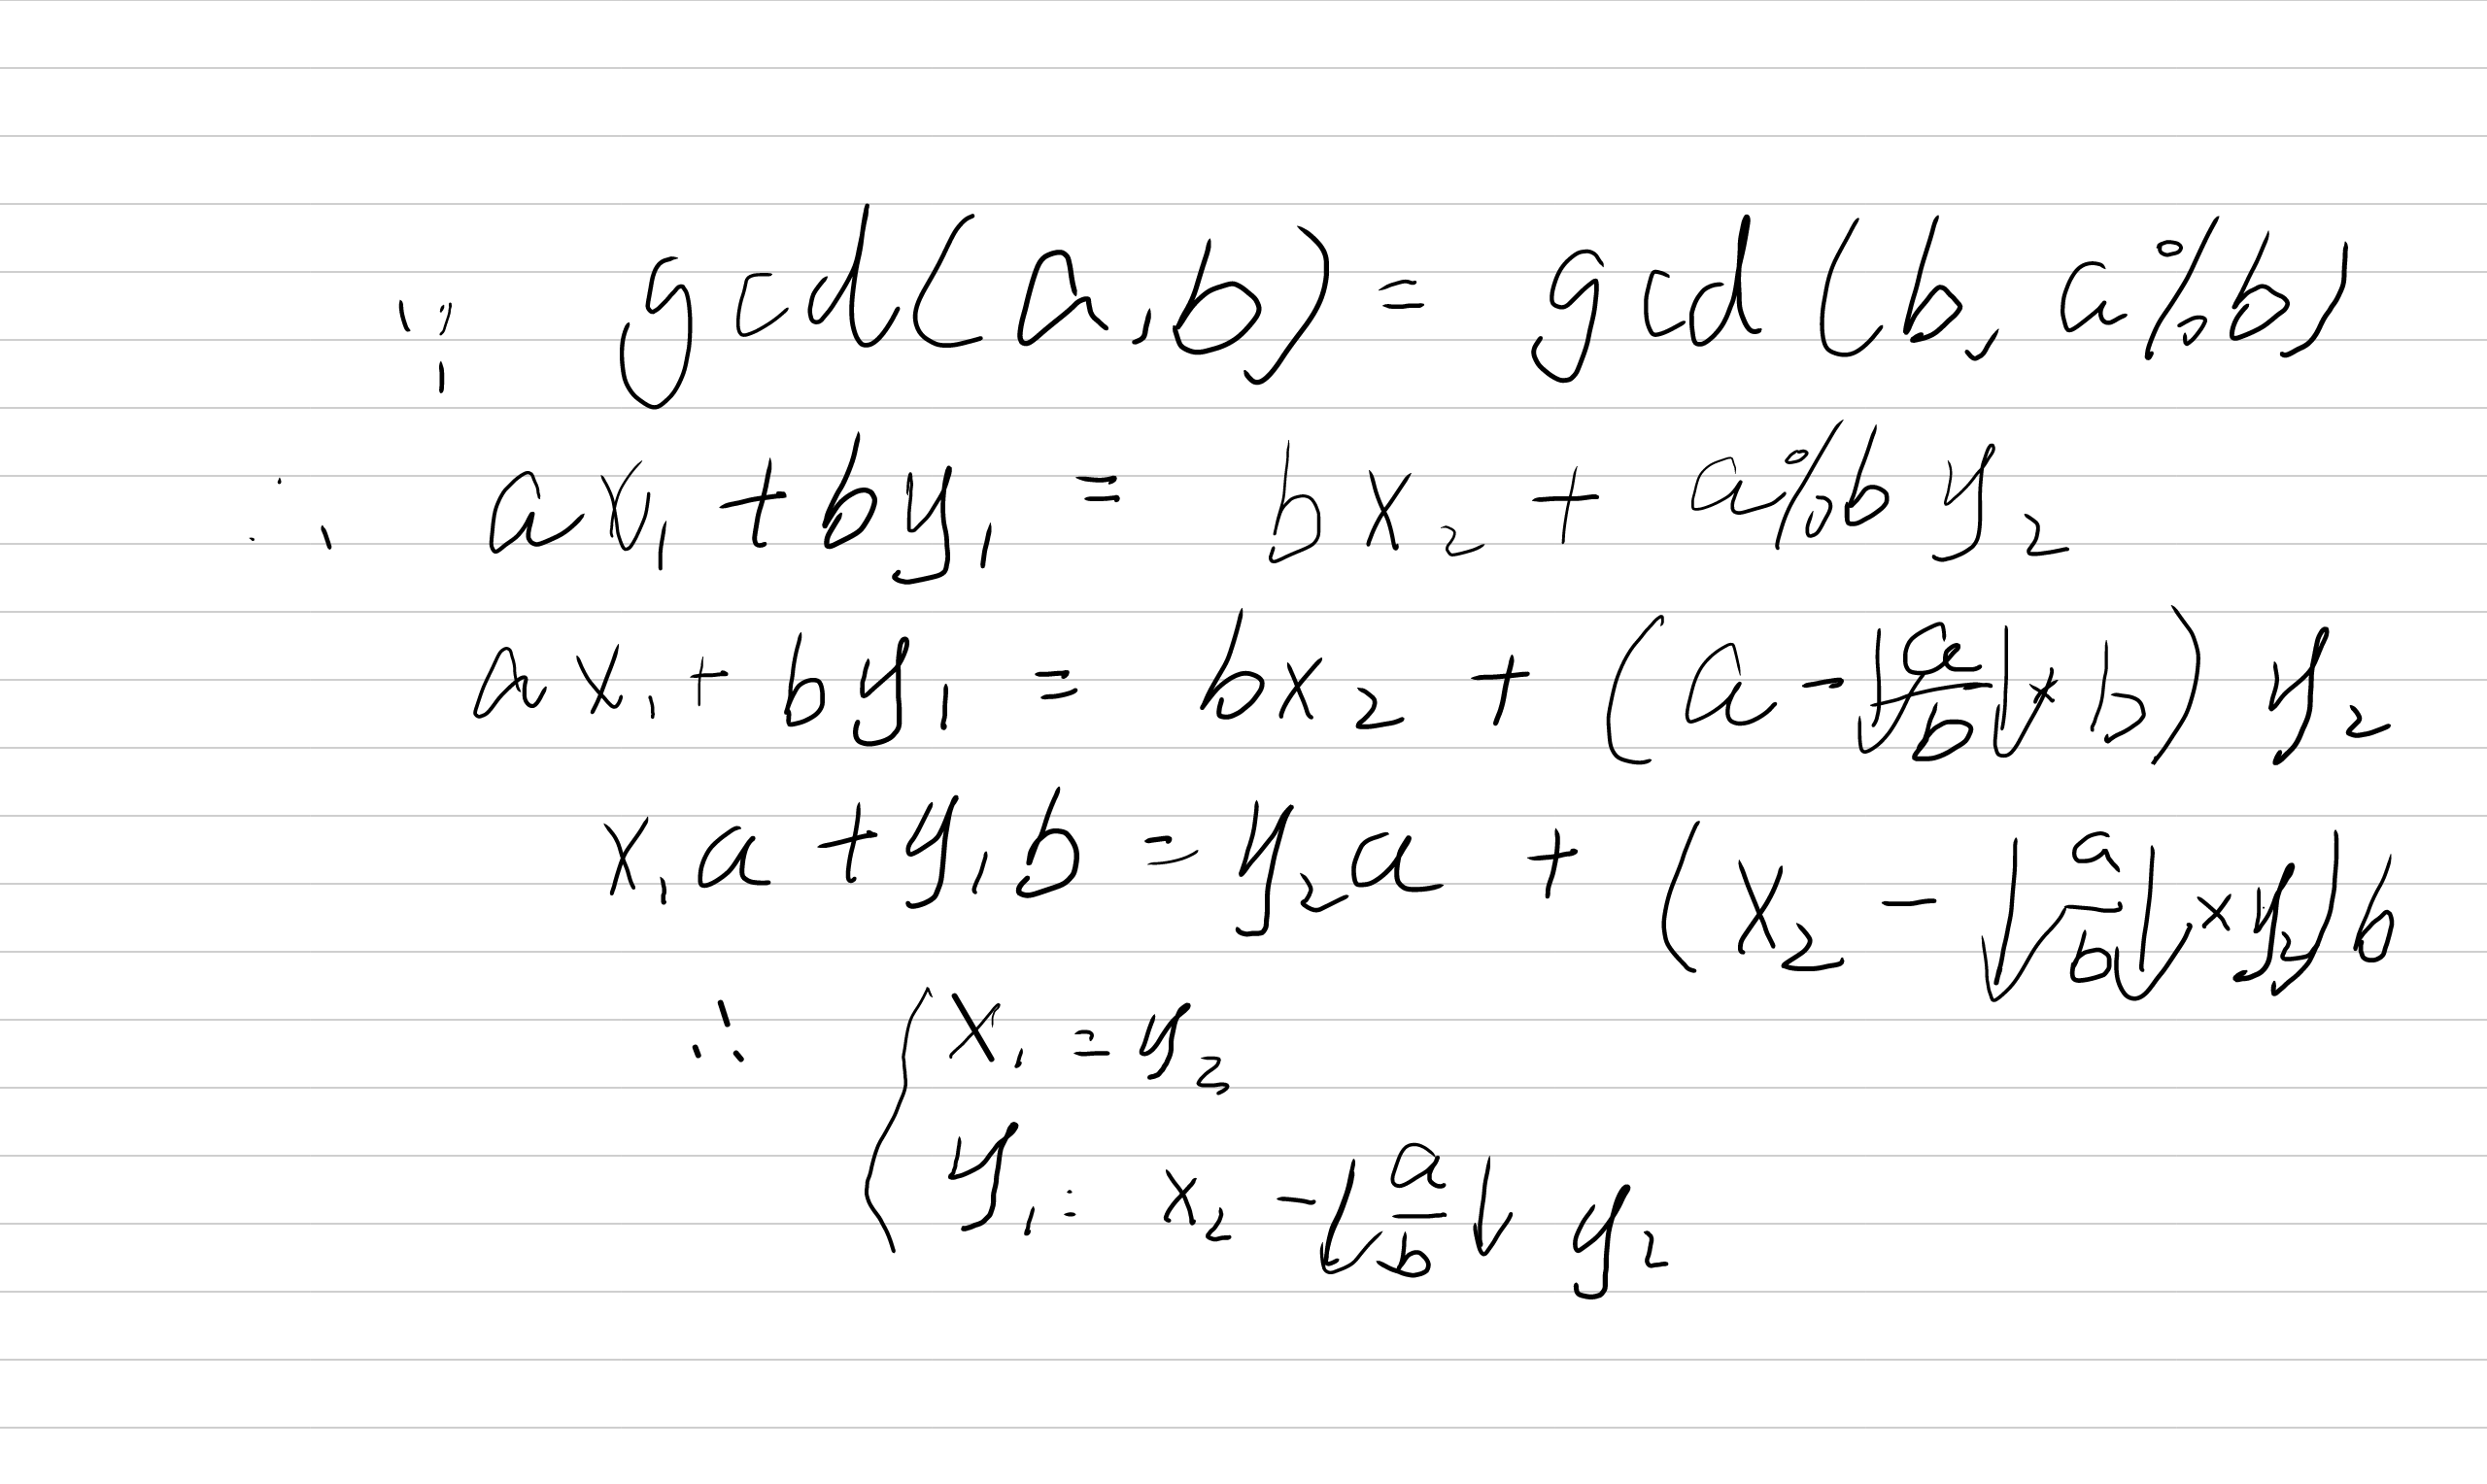 ∵ gcd(a,b) = gcd(b, a%b)
∴ ax₁ + by₁ = bx₂ + a%by₂
ax₁ + by₁ = bx₂ + (a - ⌊a/b⌋ × b) y₂
x₁a + y₁b = y₂a + (x₂ - ⌊a/b⌋ × y₂)b
∴ { x₁ = y₂
y₁ = x₂ - ⌊a/b⌋ y₂